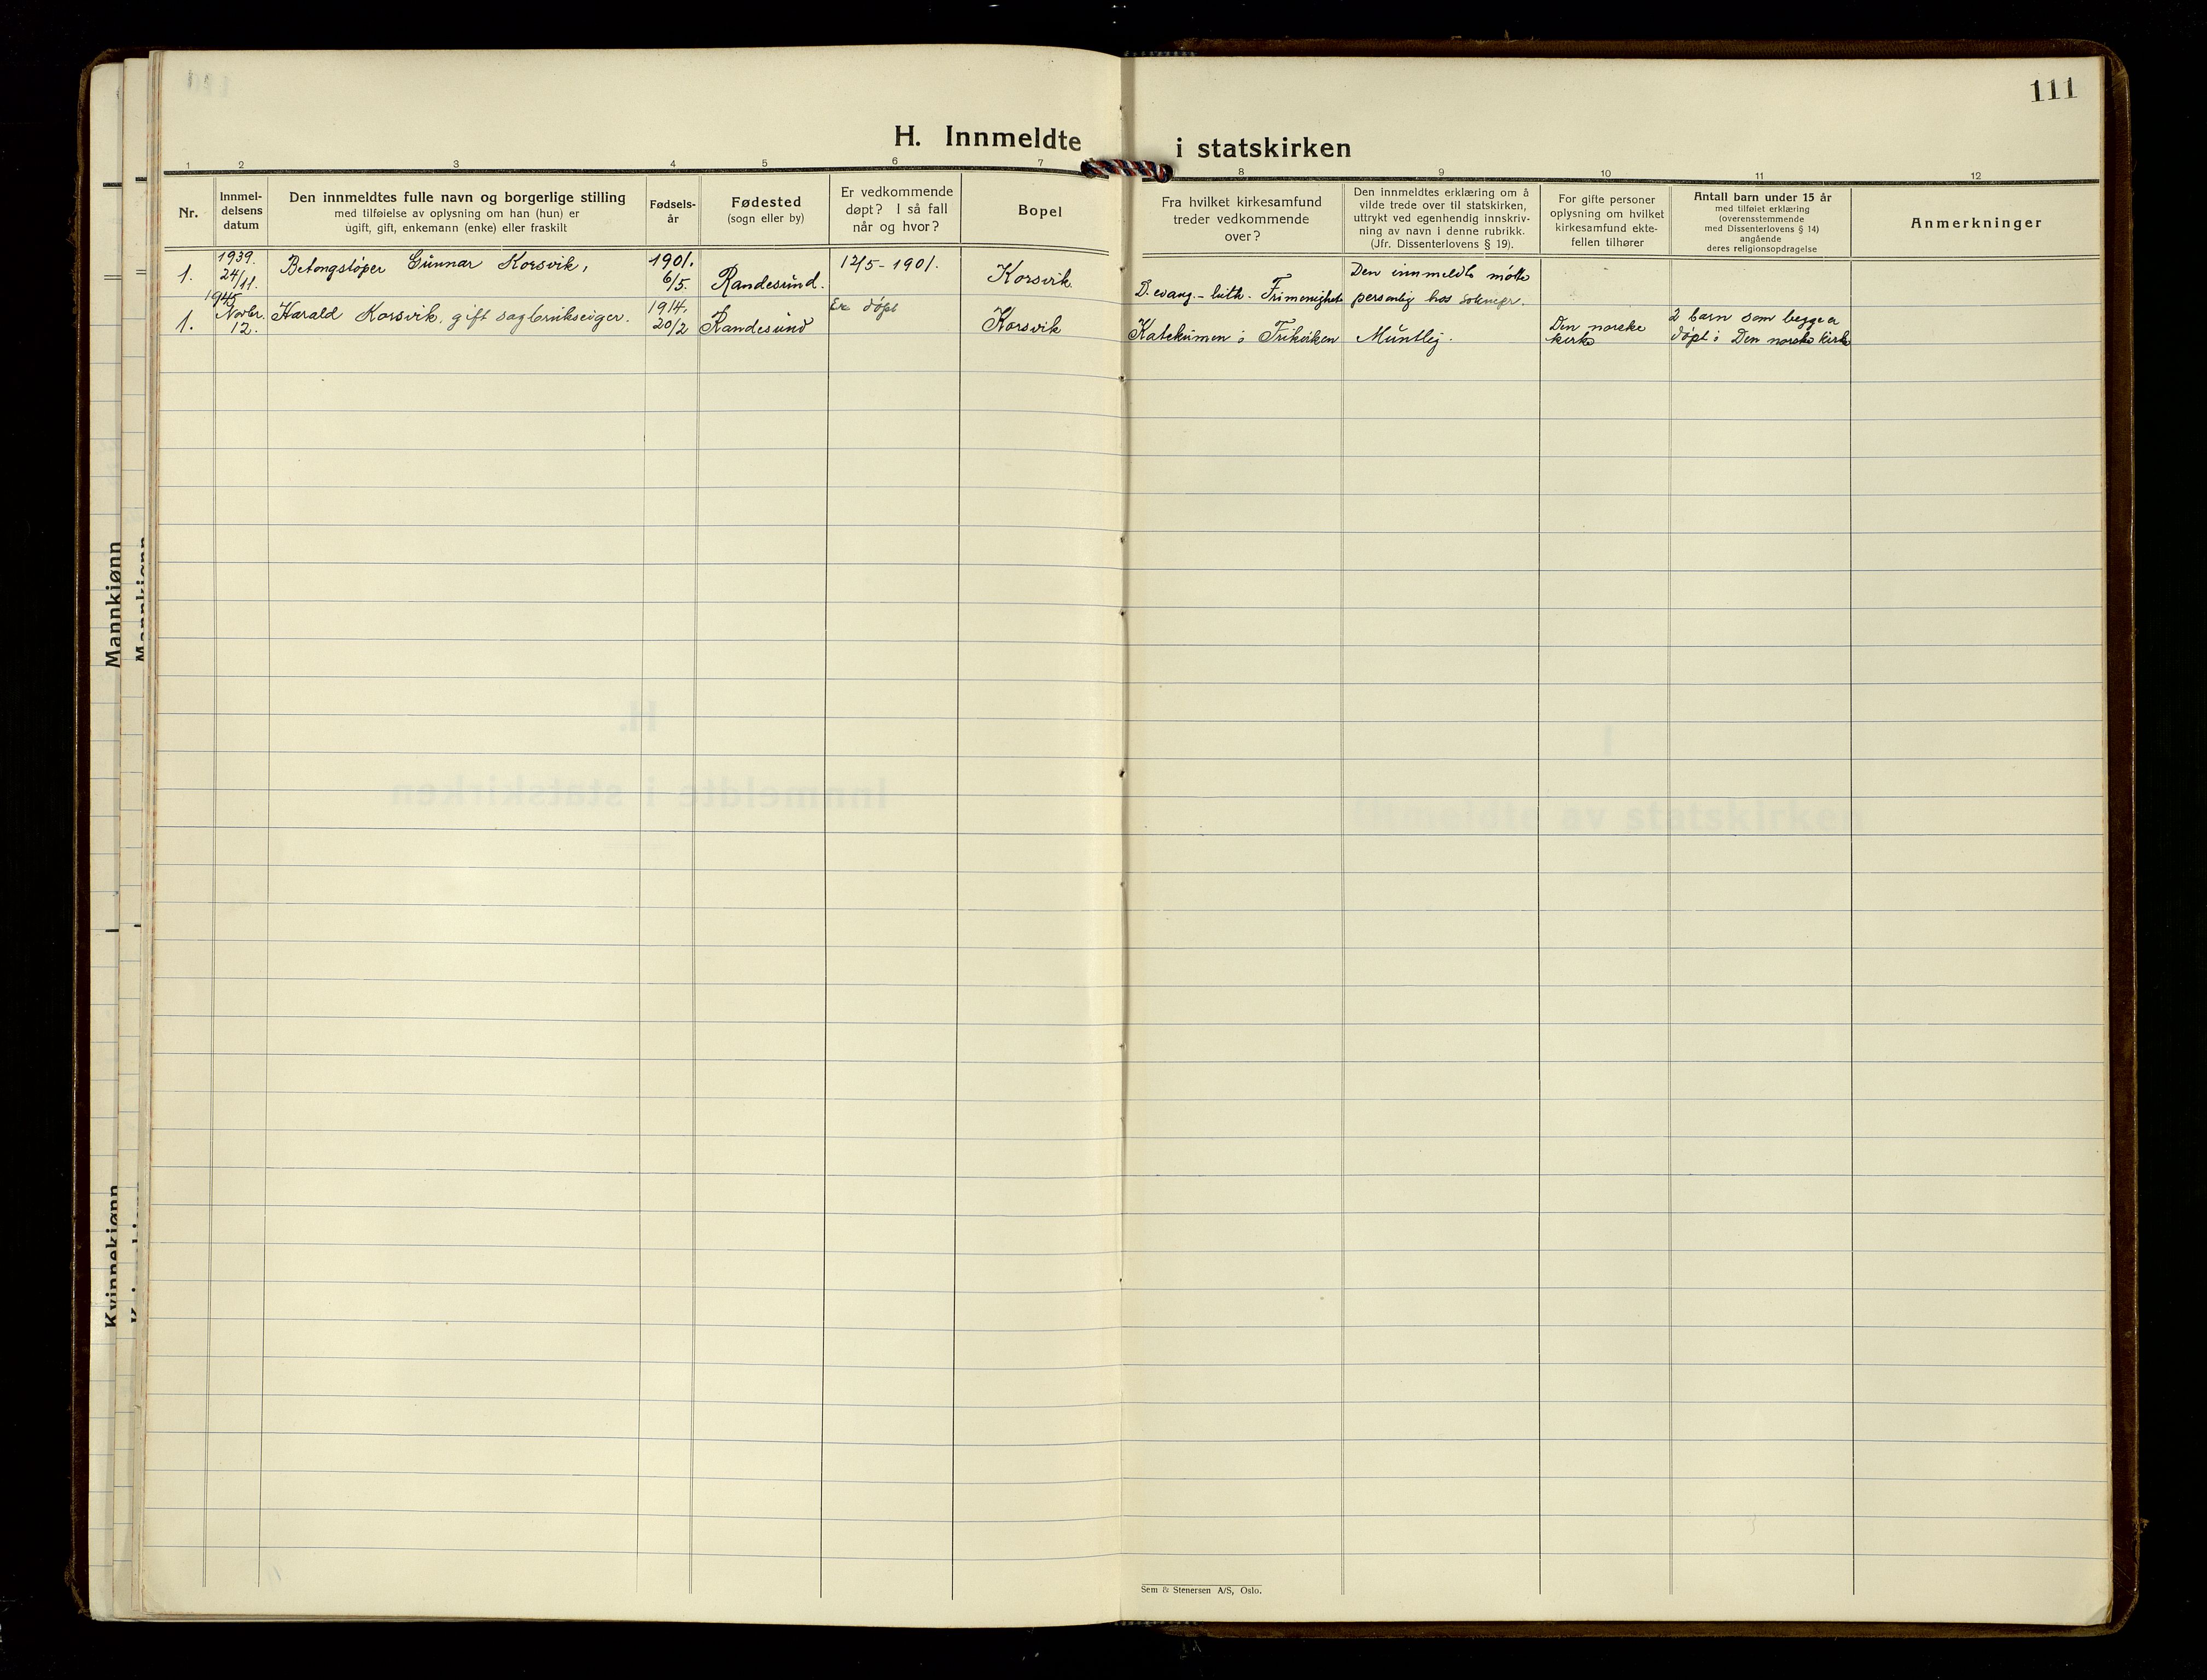 111
H. Innmeldte i statskirken
1 2 3 4 5 6 7 8 9 10 11 12
Nr.
Innmel-
delsens
datum
Den innmeldtes fulle navn og borgerlige stilling
med tilføielse av oplysning om han (hun) er
ugift, gift, enkemann (enke) eller fraskilt
Fødsels-
år
Fødested
(sogn eller by)
Er vedkommende
døpt? I så fall
når og hvor?
Bopel
Fra hvilket kirkesamfund
treder vedkommende
over?
Den innmeldtes erklæring om å
vilde trede over til statskirken,
uttrykt ved egenhendig innskriv-
ning av navn i denne rubrikk.
(Jfr. Dissenterlovens § 19).
For gifte personer
oplysning om hvilket
kirkesamfund ekte-
fellen tilhører
Antall barn under 15 år
med tilføiet erklæring
(overensstemmende
med Dissenterlovens § 14)
angående
deres religionsopdragelse
Anmerkninger
1.
1939.
24/11.
Betongstøper Gunnar Korsvik,
1901.
6/5.
Randesund.
12/5-1901.
Korsvik.
D. evang.-luth. Frimenighet
Den innmeldte møtte
personlig hos soknepr.
1.
1945
Novbr.
12.
Harald Korsvik, gift sagbrukseiger.
1914.
20/2
Randesund
Er døpt
Korsvik
Katekumen i Frikirken
Muntlig.
Den norske
kirke
2 barn som begge er
døpt i Den norske kirke
Mannkjønn
Mannkjønn
Kvinnekjønn
Sem & Stenersen A/S, Oslo.